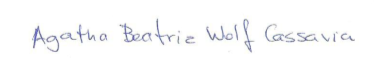 Agatha Beatriz Wolf Cassavia